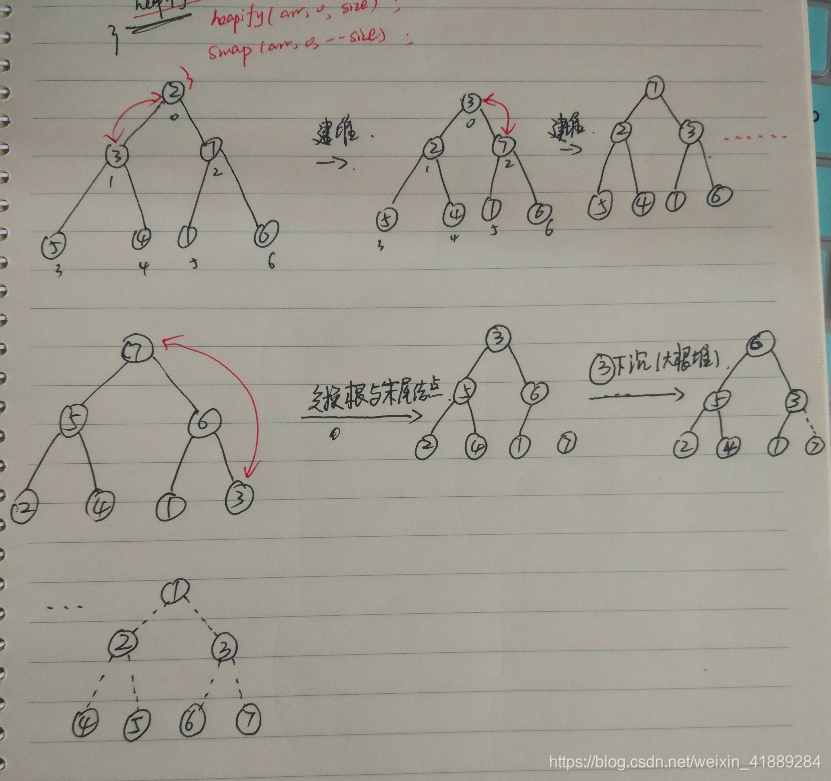 heapify
heapify(arr, 0, size);
}
swap(arr, 0, --size);
2
0
3
1
7
2
5
3
4
4
1
5
6
6
建堆.
3
0
2
1
7
2
5
3
4
4
1
5
6
6
建堆.
7
2
3
5
4
1
6
......
7
5
6
2
4
1
3
交换根与末尾结点.
0
3
5
6
2
4
1
7
③下沉(大根堆).
6
5
3
2
4
1
7
...
1
2
3
4
5
6
7
https://blog.csdn.net/weixin_41889284